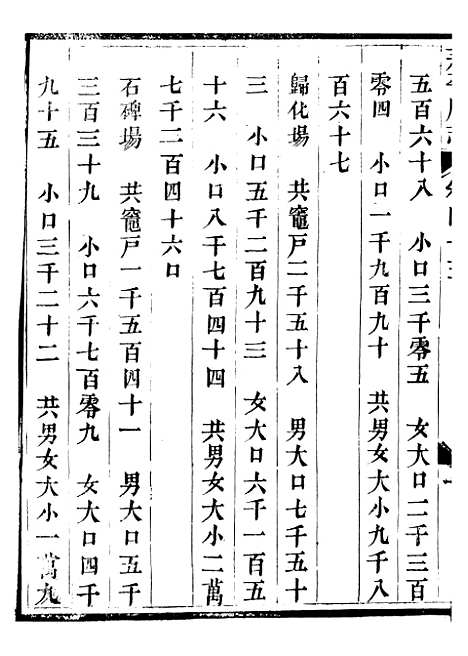 五百六十八　小口三千零五　女大口二千三百
零四　小口一千九百九十　共男女大小九千八
百六十七
歸化場　共竈戸二千五十八　男大口七千五十
三　小口五千二百九十三　女大口六千一百五
十六　小口八千七百四十四　共男女大小二萬
七千二百四十六口
石碑場　共竈戸一千五百四十一　男大口五千
三百三十九　小口六千七百零九　女大口四千
九十五　小口三千二十二　共男女大小一萬九